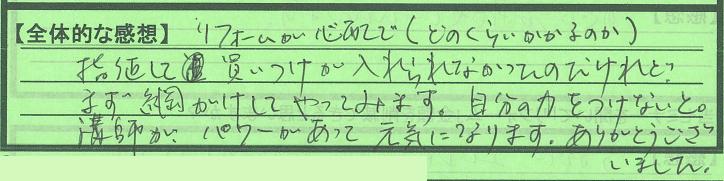 【全体的な感想】 リフォームが心配で(どのくらいかかるのか)
指値して買いつけが入れられなかったのだけれど、
まず綱がけしてやってみます。自分の力をつけないと。
講師が、パワーがあって元気になります。ありがとうござ
いました。